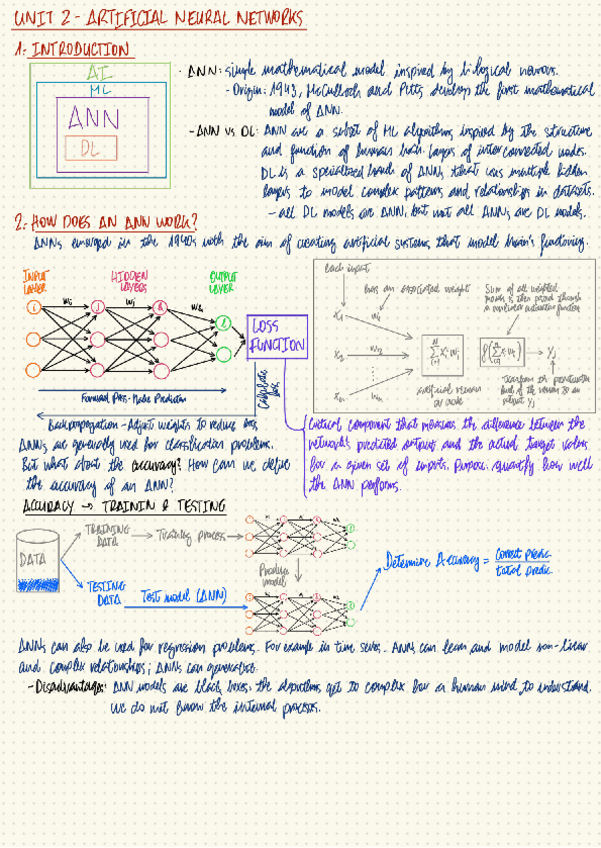 UNIT 2 - ARTIFICIAL NEURAL NETWORKS
1. INTRODUCTION
AI
ML
ANN
DL
· ANN: simple mathematical model inspired by biological neurons.
- Origin: 1943, McCulloch and Pitts develop the first mathematical
model of ANN.
- ANN vs DL: ANN are a subset of ML algorithms inspired by the structure
and function of human brain. Layers of interconnected nodes.
DL is a specialized branch of ANNs that uses multiple hidden
layers to model complex patterns and relationships in datasets.
- all DL models are ANN, but not all ANNs are DL models.
2. HOW DOES AN ANN WORK?
ANNs emerged in the 1940s with the aim of creating artificial systems that model brain's functioning.
INPUT
LAYER
HIDDEN
LAYERS
OUTPUT
LAYER
LOSS
FUNCTION
Forward Pass - Make Prediction
Calculate
loss
Backpropagation - Adjust weights to reduce loss
Each input
has an associated weight
Sum of all weighted
inputs is then passed through
a nonlinear activation function
x₁ w₁
x₂ w₂
xₙ wₙ
artificial neuron
or node
output yⱼ
Critical component that measures the difference between the
network's predicted outputs and the actual target values
for a given set of inputs. Purpose: quantify how well
the ANN performs.
ANNs are generally used for classification problems.
But what about the accuracy? How can we define
the accuracy of an ANN?
ACCURACY → TRAININ & TESTING
DATA
TRAINING
DATA
Training process
Produce
model
TESTING
DATA
Test model (ANN)
Determine Accuracy = correct predic. / total predic.
ANNs can also be used for regression problems. For example in time series. ANNs can learn and model non-linear
and complex relationships; ANNs can generalize.
- Disadvantages: ANN models are black boxes: the algorithms get to complex for a human mind to understand.
We do not know the internal processes.